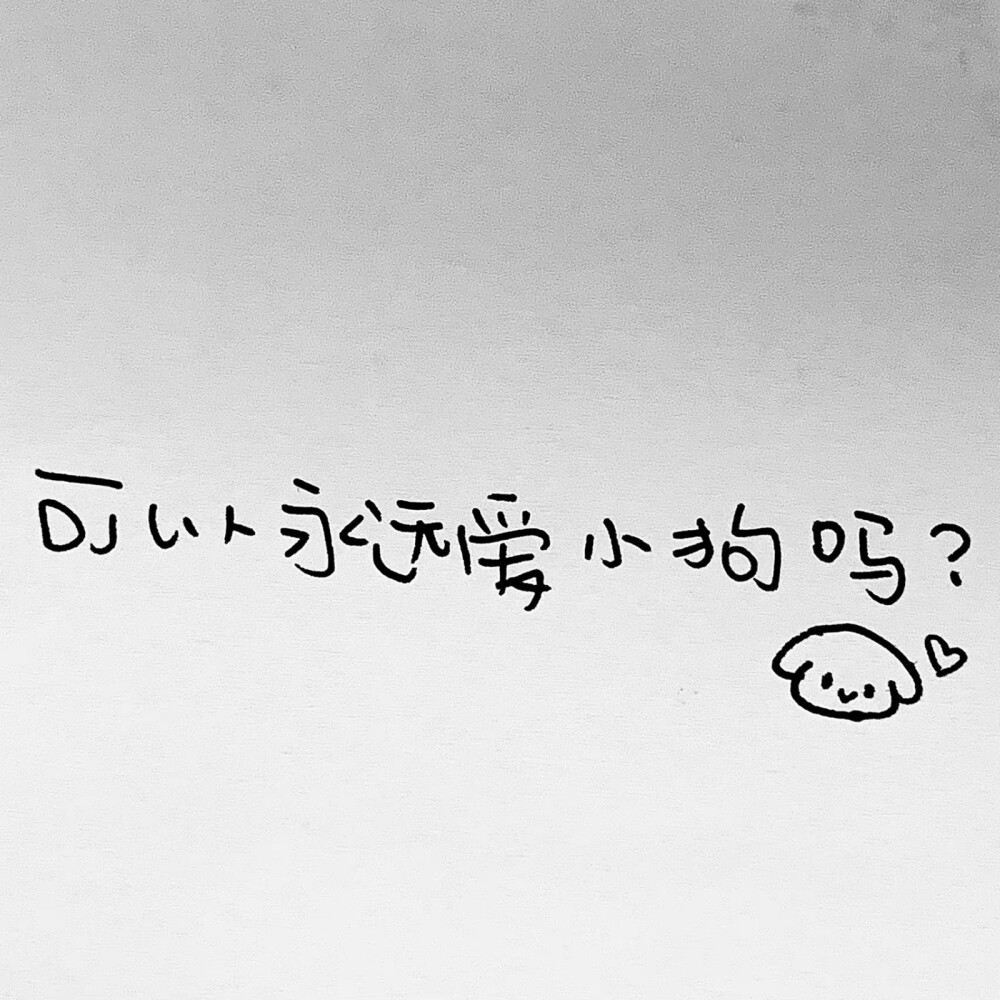 可以永远爱小狗吗?